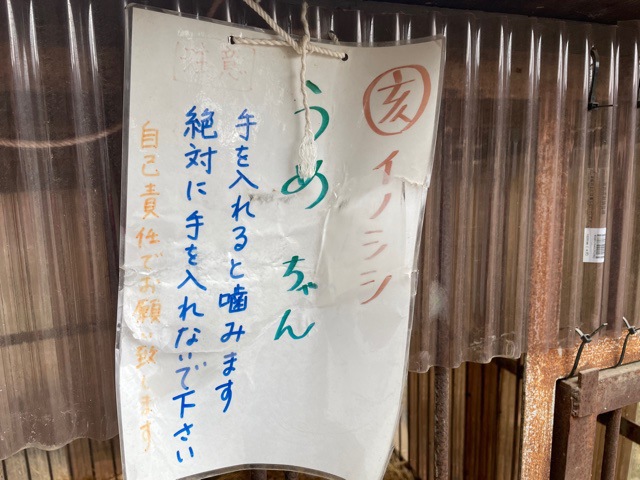 亥 イノシシ
うめちゃん
注意
手を入れると噛みます
絶対に手を入れないで下さい
自己責任でお願い致します